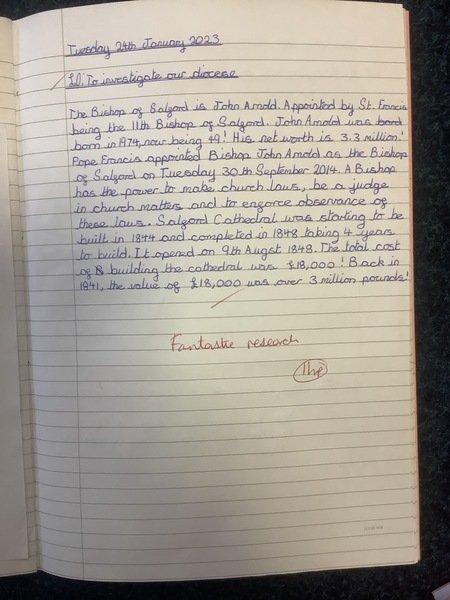 Tuesday 24th January 2023
LO: To investigate our diocese
The Bishop of Salford is John Arnold. Appointed by St. Francis
being the 11th Bishop of Salford. John Arnold was bord
born in 1974, now being 49! His net worth is 3.3 million!
Pope Francis appointed Bishop John Arnold as the Bishop
of Salford on Tuesday 30th September 2014. A Bishop
has the power to make church laws, be a judge
in church matters and to enforce observance of
these laws. Salford Cathedral was starting to be
built in 1844 and completed in 1848 taking 4 years
to build. It opened on 9th Augst 1848. The total cost
of building the cathedral was £18,000! Back in
1841, the value of £18,000 was over 3 million pounds!
Fantastic research
1hp